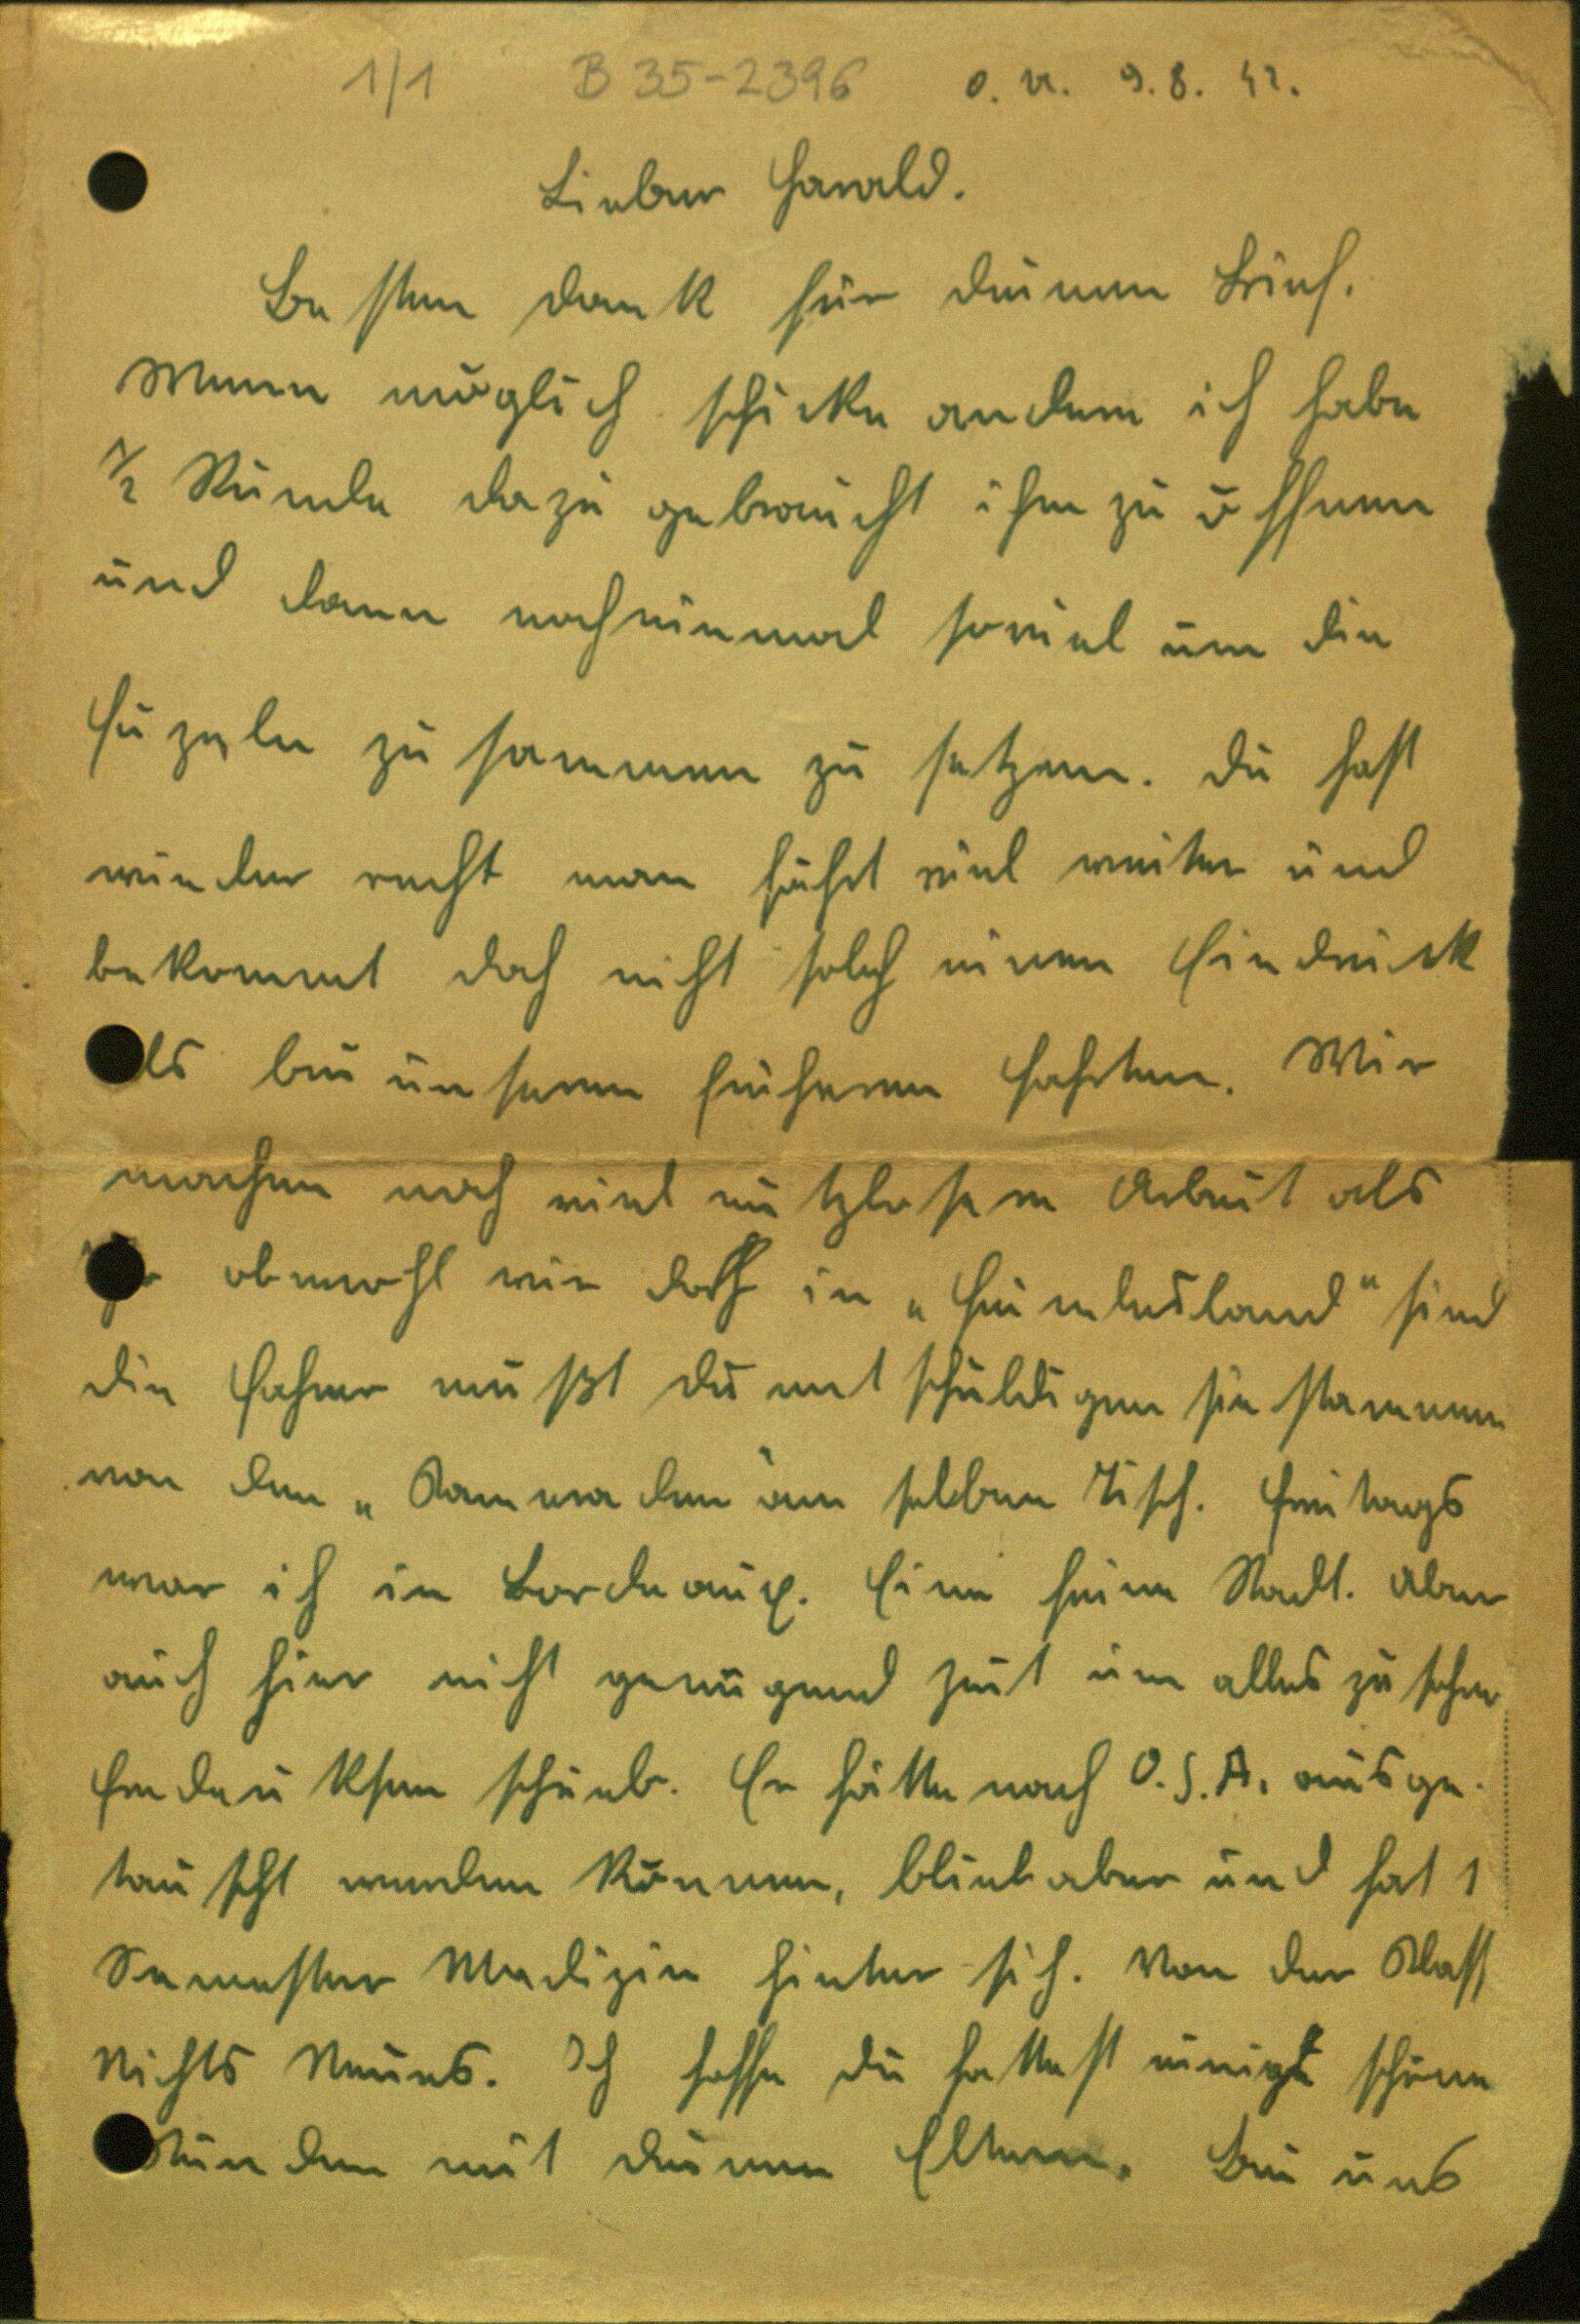 1/1 B 35-2396 O. U. 9.8.42.
Lieber Harald.
Besten Dank für deinen Brief.
Wenn möglich schicke andere ich habe
1/2 Stunde dazu gebraucht ihn zu öffnen
und dann nocheinmal soviel um die
zusammen zu setzen. Du hast
wieder recht man fährt viel weiter und
bekommt doch nicht solch einen Eindruck
als bei unseren früheren Fahrten. Wir
machen noch viel nutzlosere Arbeit als
obwohl wir doch in „Feindesland" sind
die mußt du entschuldigen sie stammen
von den „Kameraden am selben Tisch. Freitags
war ich in Bordeaux. Eine feine Stadt. Aber
auch hier nicht genügend Zeit um alles zu sehen
schrieb. Er hätte nach O.S.A. ausge-
tauscht werden können, blieb aber und hat 1
Semester Medizin hinter sich. Von der Klass
Nichts Neues. Ich hoffe du hattest einige schöne
Stunden mit deinen Eltern. Bei uns